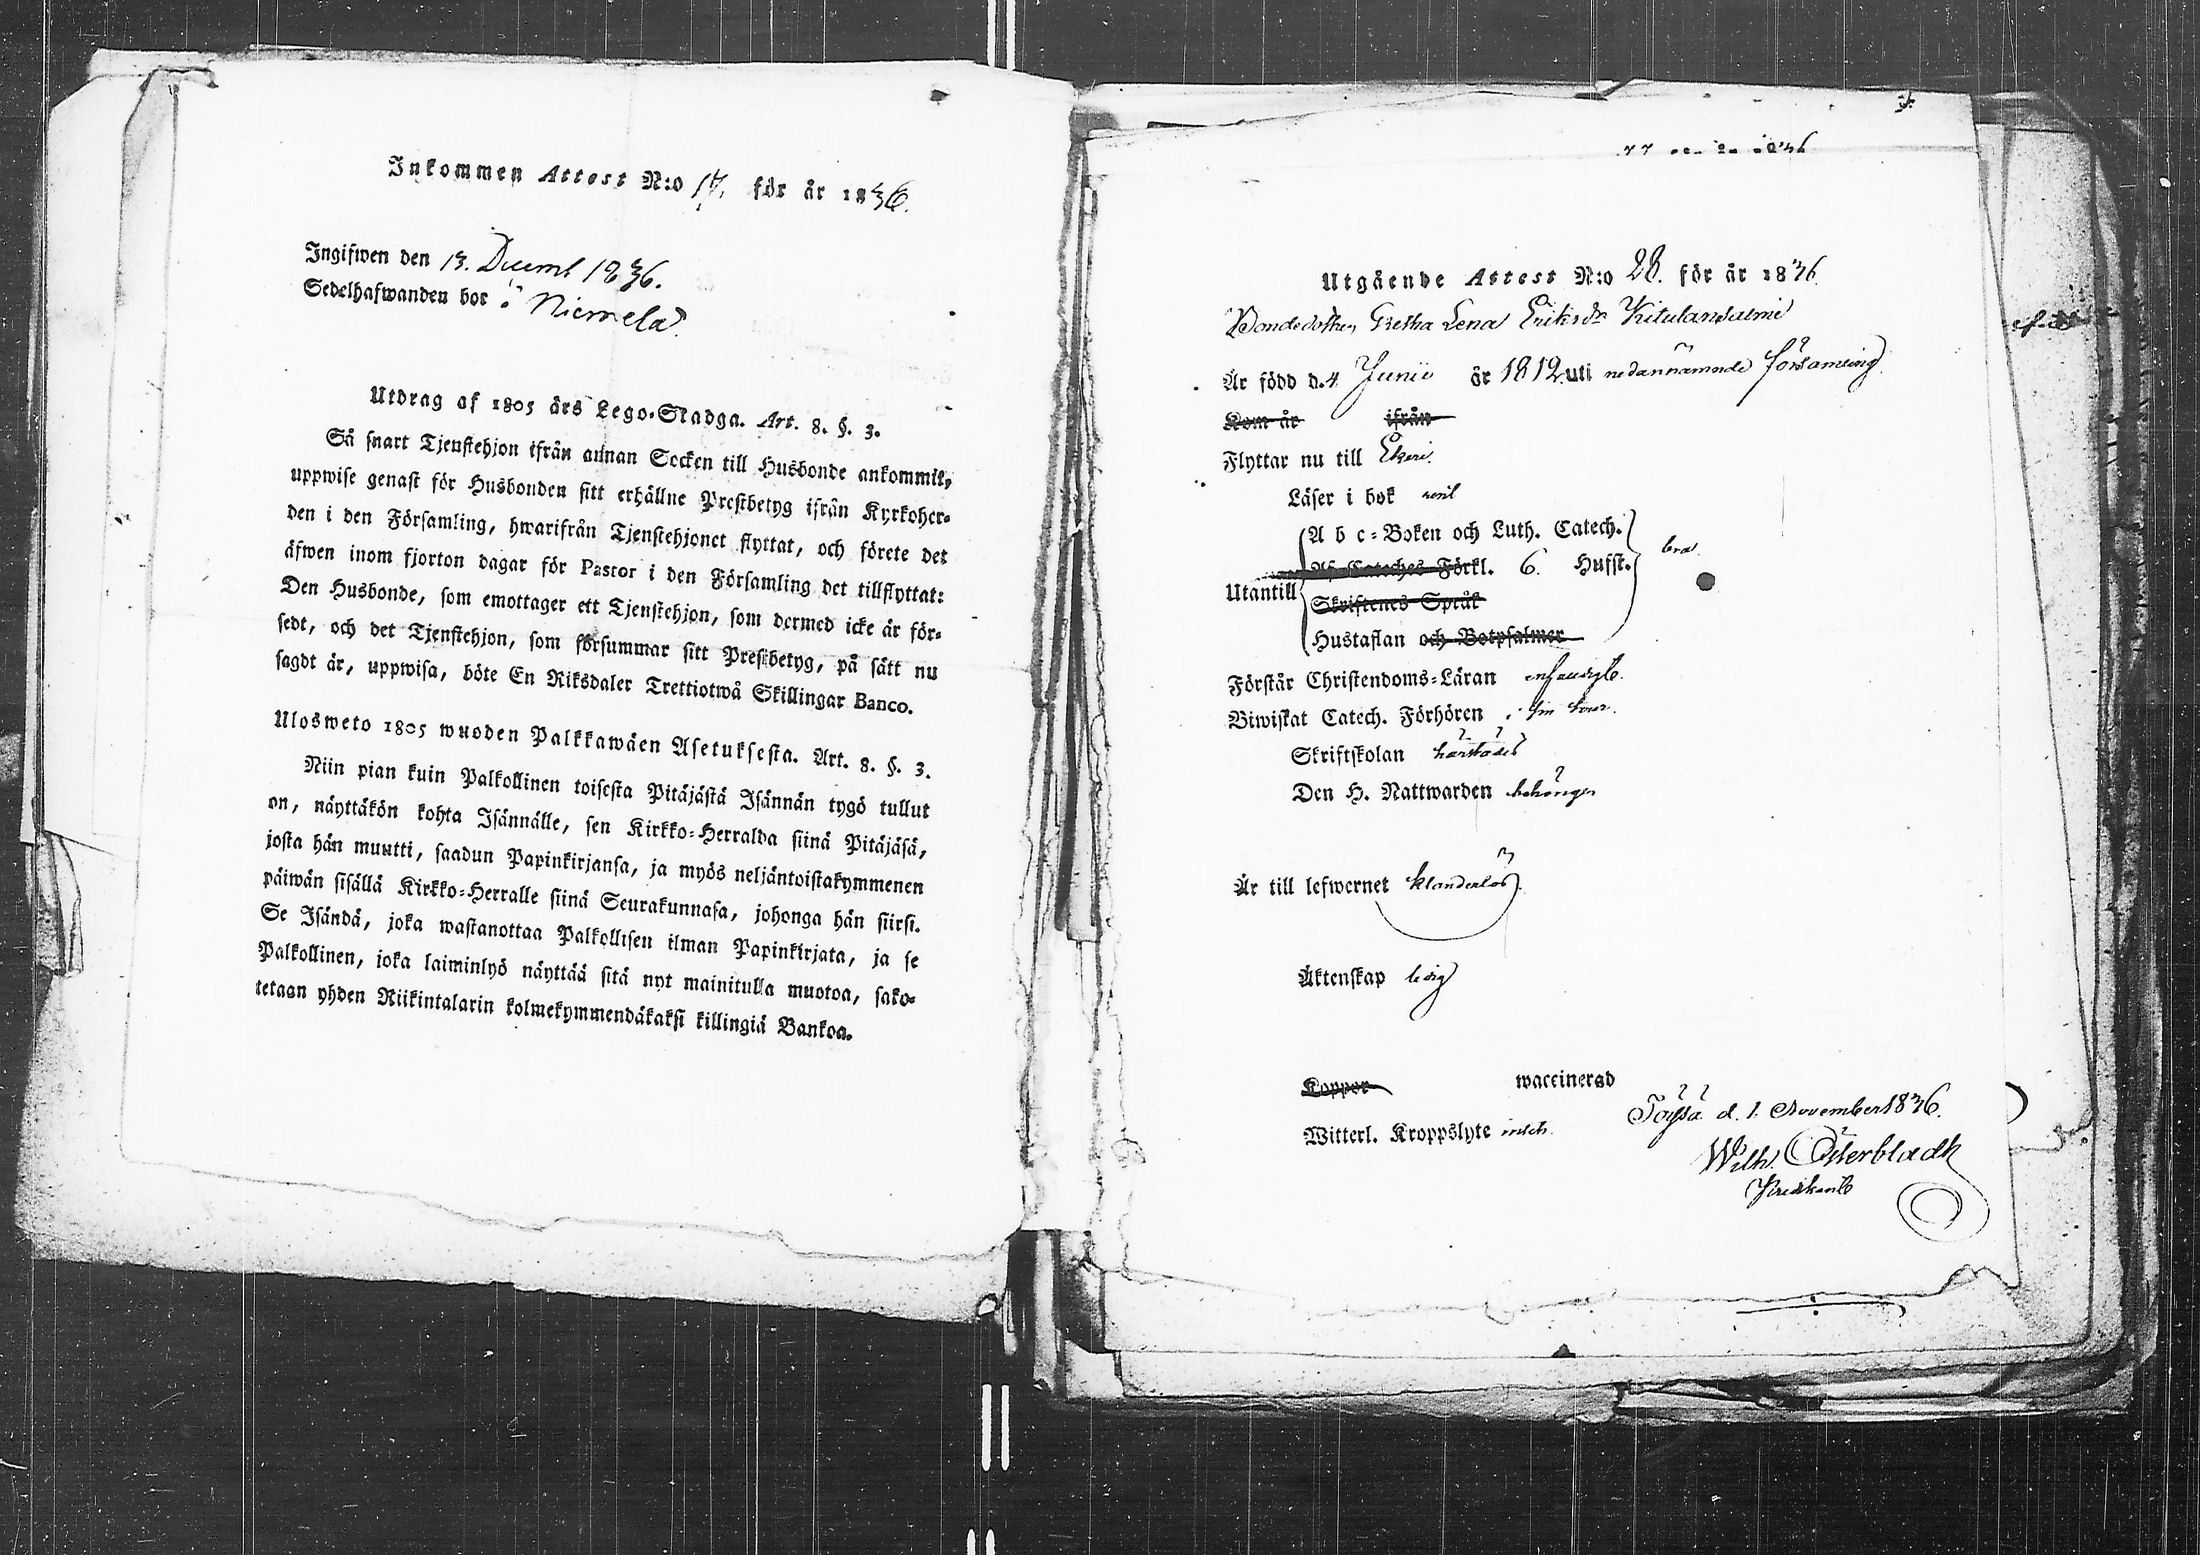 Inkommen Attest N:o 17. för år 1836.
Ingifwen den 13. Decemb 1836.
Sedelhafwanden bor i Niemelä.
Utdrag af 1805 års Lego-Stadga. Art. 8. §. 3.
Så snart Tjenstehjon ifrån annan Socken till Husbonde ankommit,
uppwise genast för Husbonden sitt erhållne Prestbetyg ifrån Kyrkoher-
den i den Församling, hwarifrån Tjenstehjonet flyttat, och förete det
äfwen inom fjorton dagar för Pastor i den Församling det tillflyttat:
Den Husbonde, som emottager ett Tjenstehjon, som dermed icke är för-
sedt, och det Tjenstehjon, som försummar sitt Prestbetyg, på sätt nu
sagdt är, uppwisa, böte En Riksdaler Trettiotwå Skillingar Banco.
Ulosweto 1805 wuoden Palkkawäen Asetuksesta. Art. 8. §. 3.
Niin pian kuin Palkollinen toisesta Pitäjästä Isännän tygö tullut
on, näyttäkön kohta Isännälle, sen Kirkko-Herralda siinä Pitäjäsä,
josta hän muutti, saadun Papinkirjansa, ja myös neljäntoistakymmenen
päiwän sisällä Kirkko-Herralle siinä Seurakunnasa, johonga hän siirsi.
Se Isändä, joka wastanottaa Palkollisen ilman Papinkirjata, ja se
Palkollinen, joka laiminlyö näyttää sitä nyt mainitulla muotoa, sako-
tetaan yhden Riikintalarin kolmekymmendäkaksi killingiä Bankoa.
Utgående Attest N:o 28. för år 1836.
Bondedotter, Gretha Lena Eriksdr Kitulansalmi
Är född d. 4 Junii år 1812 uti nedannämnde församling.
Kom år ifrån
Flyttar nu till Etseri.
Läser i bok
A b c-Boken och Luth. Catech.
Af Cateches Förkl. 6. Husst. bra.
Utantill
Skriftenes Språk
Hustaflan och Botpsalmer
Förstår Christendoms-Läran enfaldigt.
Biwistat Catech. Förhören
Skriftskolan
Den H. Nattwarden
Är till lefwernet klanderlös.
Äktenskap ledig
Koppor waccinerad
Witterl. Kroppslyte
Töysä d. 1. November 1836.
Wilh. Österbladh
Predikant